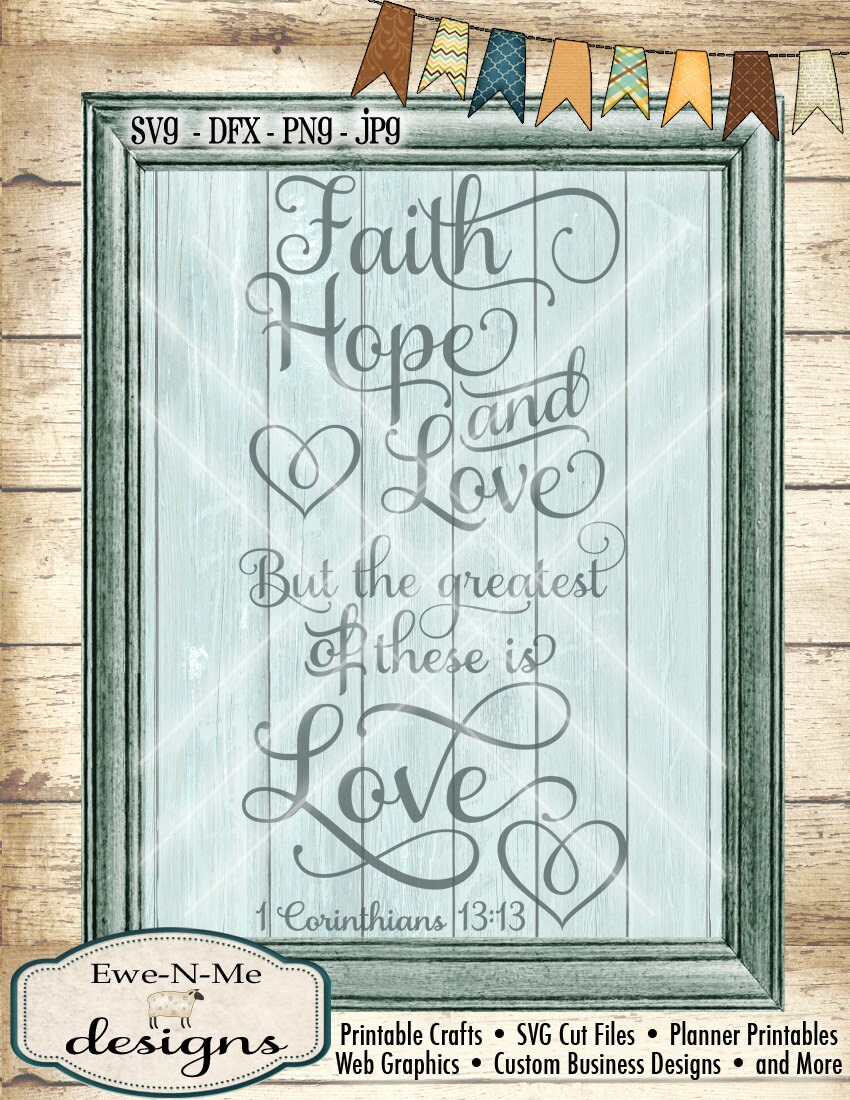 SVG - DFX - PNG - JPG
Faith
Hope
and
Love
But the greatest
of these is
Love
1 Corinthians 13:13
Ewe-N-Me
designs
Printable Crafts • SVG Cut Files • Planner Printables
Web Graphics • Custom Business Designs • and More